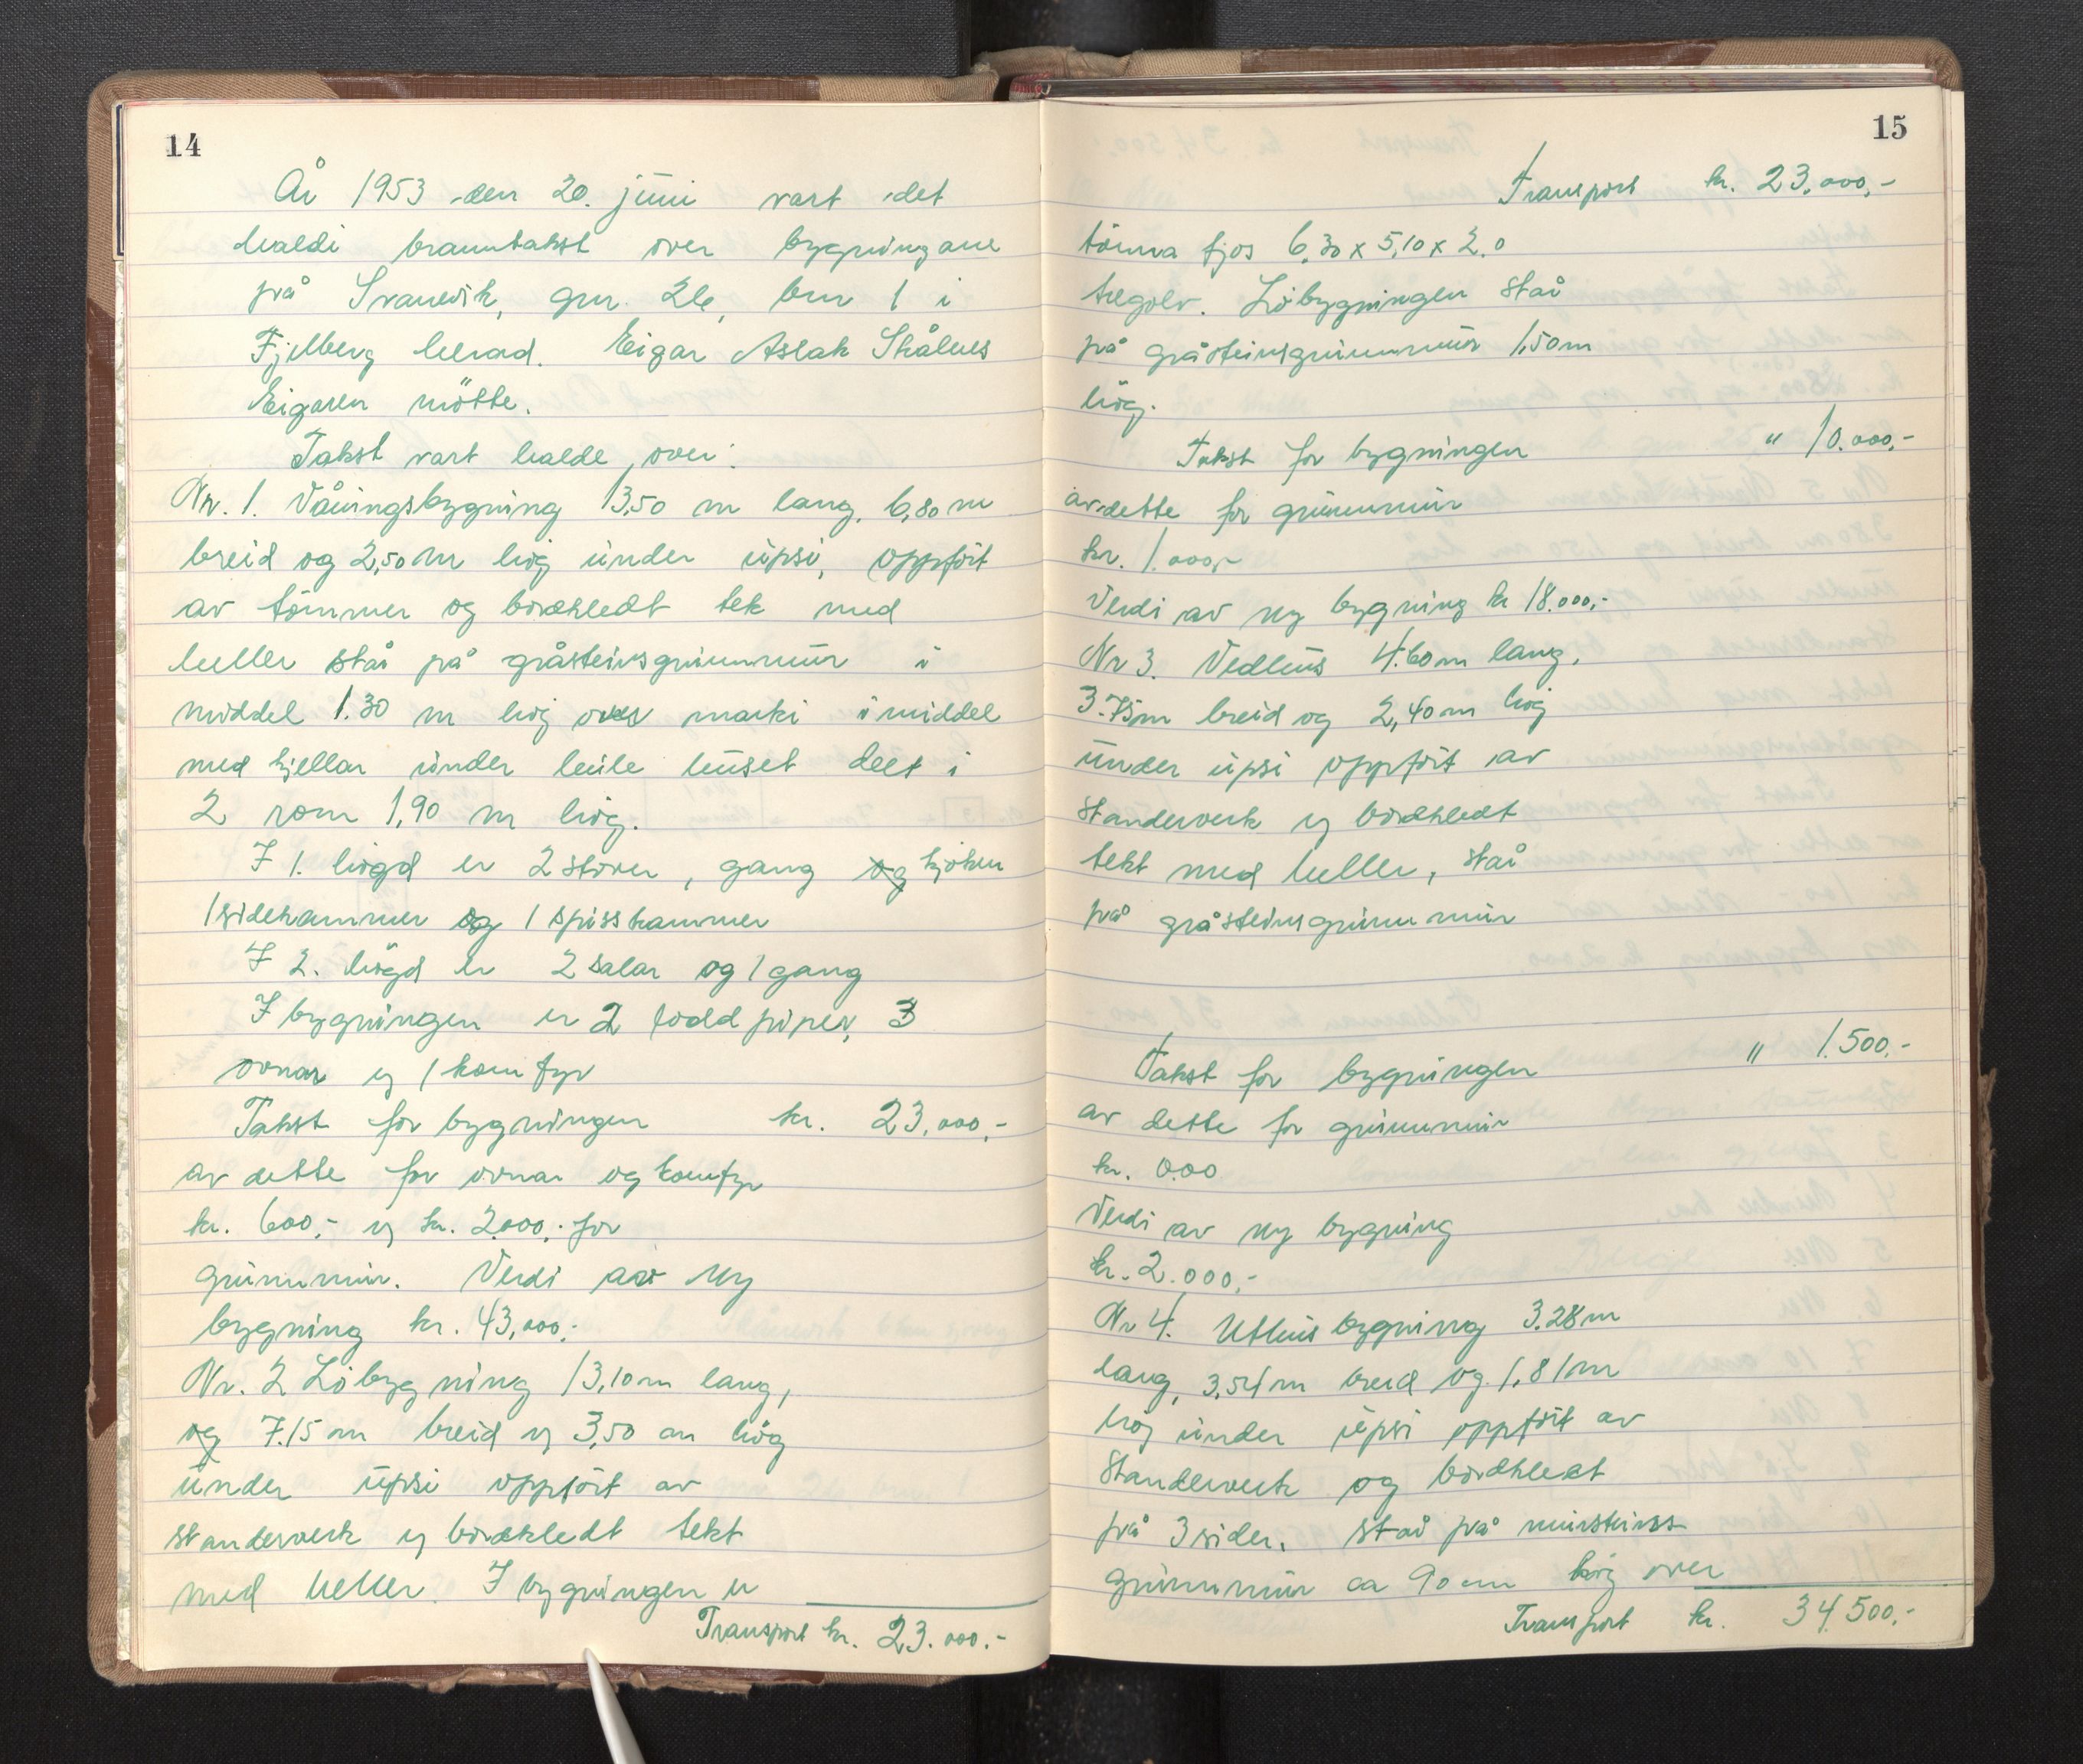 14
År 1953 den 20. juni vart det
haldi branntakst over bygningane
på Svanevik, gnr. 26, bnr 1 i
Fjelberg herad. Eigar Aslak Skålnes
Eigaren møtte.
Takst vart halde over:
Nr. 1. Våningsbygning 13,50 m lang, 6,80 m
breid og 2,50 m høg under upsi, oppført
av tömmer og bordkledt tek med
heller står på gråsteinsgrunnmur i
middel 1.30 m høg over marki i middel
med kjellar under heile huset delt i
2 rom 1,90 m høg.
I 1. høgd er 2 stover, gang og kjøken
1 sidekammer og 1 spisskammer
I 2. høgd er 2 salar og 1 gang
I bygningen er 2 todd piper, 3
ovnar og 1 komfyr
Takst for bygningen kr. 23,000,-
av dette for ovnar og komfyr
kr. 600,- og kr. 2000,- for
grunnmur. Verdi av ny
bygning kr. 43,000,-
Nr. 2 Löbygning 13,10 m lang,
og 7.15 m breid og 3,50 m høg
under upsi oppført av
standerverk og bordkledt tekt
med heller. I bygningen er
Transport kr. 23.000.-
15
Transport kr. 23.000,-
tömra fjos 6,30 x 5,10 x 2.0
tregolv. Löbygningen står
på gråsteinsgrunnmur 1,50 m
høg.
Takst for bygningen " 10.000,-
av dette for grunnmur
kr. 1.000,-
Verdi av ny bygning kr 18.000,-
Nr 3. Vedhus 4.60 m lang,
3.75 m breid og 2,40 m høg
under upsi oppført av
standerverk og bordkledt
tekt med heller, står
på gråsteinsgrunnmur
Takst for bygningen " 1.500,-
av dette for grunnmur
kr. 000
Verdi av ny bygning
kr. 2.000,-
Nr 4. Uthusbygning 3.28 m
lang, 3,54 m breid og 1,81 m
høg under upsi oppført av
standerverk og bordkledt
på 3 sider, står på mursteins
grunnmur ca 90 cm høg over
Transport kr. 34.500,-